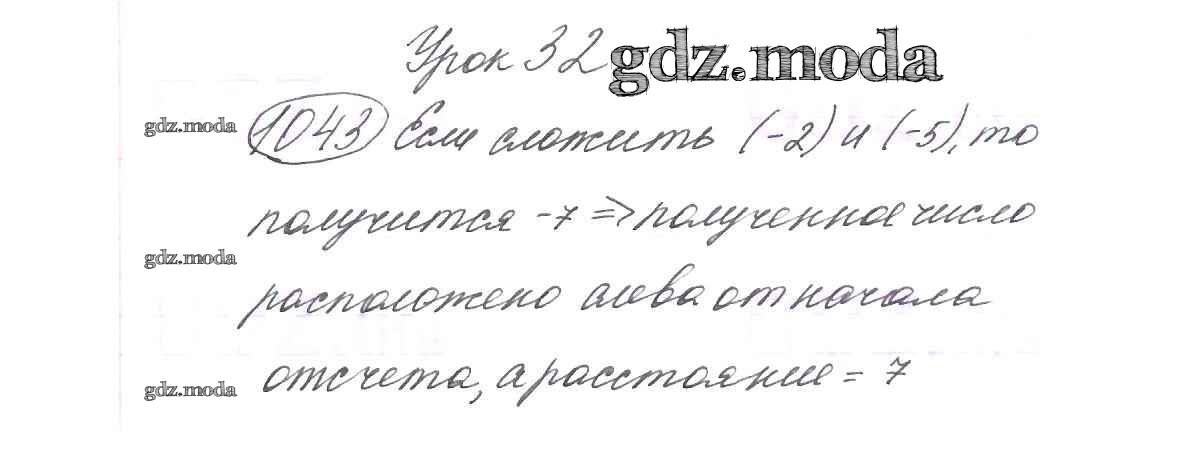 Урок 32 gdz.moda
gdz.moda 1043 Если сложить (-2) и (-5), то
получится -7 => полученное число
gdz.moda
расположено слева от начала
gdz.moda отсчета, а расстояние = 7